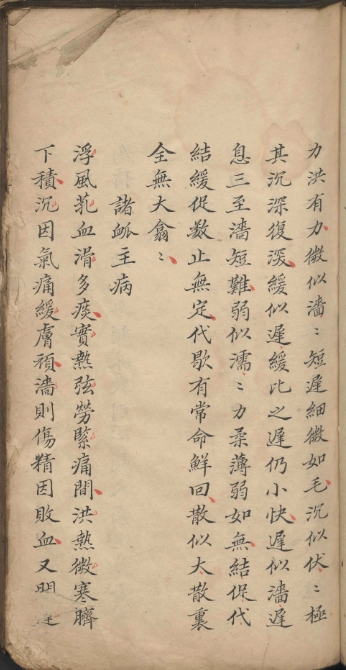 力洪有力微似濇〻短遲細微如毛沉似伏〻極
其沉深復淡緩似遲緩比之遲仍小快遲似濇遲
息三至濇短難弱似濡〻力柔薄弱如無結促代
結緩促数止無定代歇有常命鮮回散似大散裏
全無大翕〻
諸衇主病
浮風芤血滑多痰實熱弦勞緊痛間洪熱微寒臍
下積沉因氣痛緩膚頑濇則傷精因敗血又明